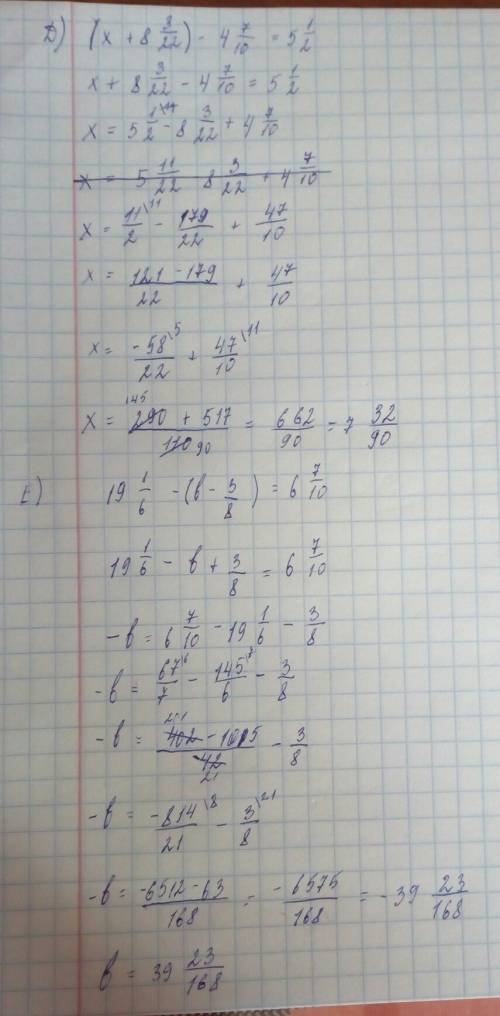 Д) (x + 8 3/22) - 4 7/10 = 5 1/2
x + 8 3/22 - 4 7/10 = 5 1/2
x = 5 1/2 \11 - 8 3/22 + 4 7/10
x = 5 11/22 8 3/22 + 4 7/10
x = 11/2 \11 - 179/22 + 47/10
x = 121 - 179/22 + 47/10
x = -58/22 \5 + 47/10 \11
x = 145 290 + 517/110 90 = 662/90 = 7 32/90
E) 19 1/6 - (b - 3/8) = 6 7/10
19 1/6 - b + 3/8 = 6 7/10
-b = 6 7/10 - 19 1/6 - 3/8
-b = 67/7 \6 - 145/6 \7 - 3/8
-b = 201 402 - 1015/42 21 - 3/8
-b = -814/21 \8 - 3/8 \21
-b = -6512 - 63/168 = -6575/168 = -39 23/168
b = 39 23/168